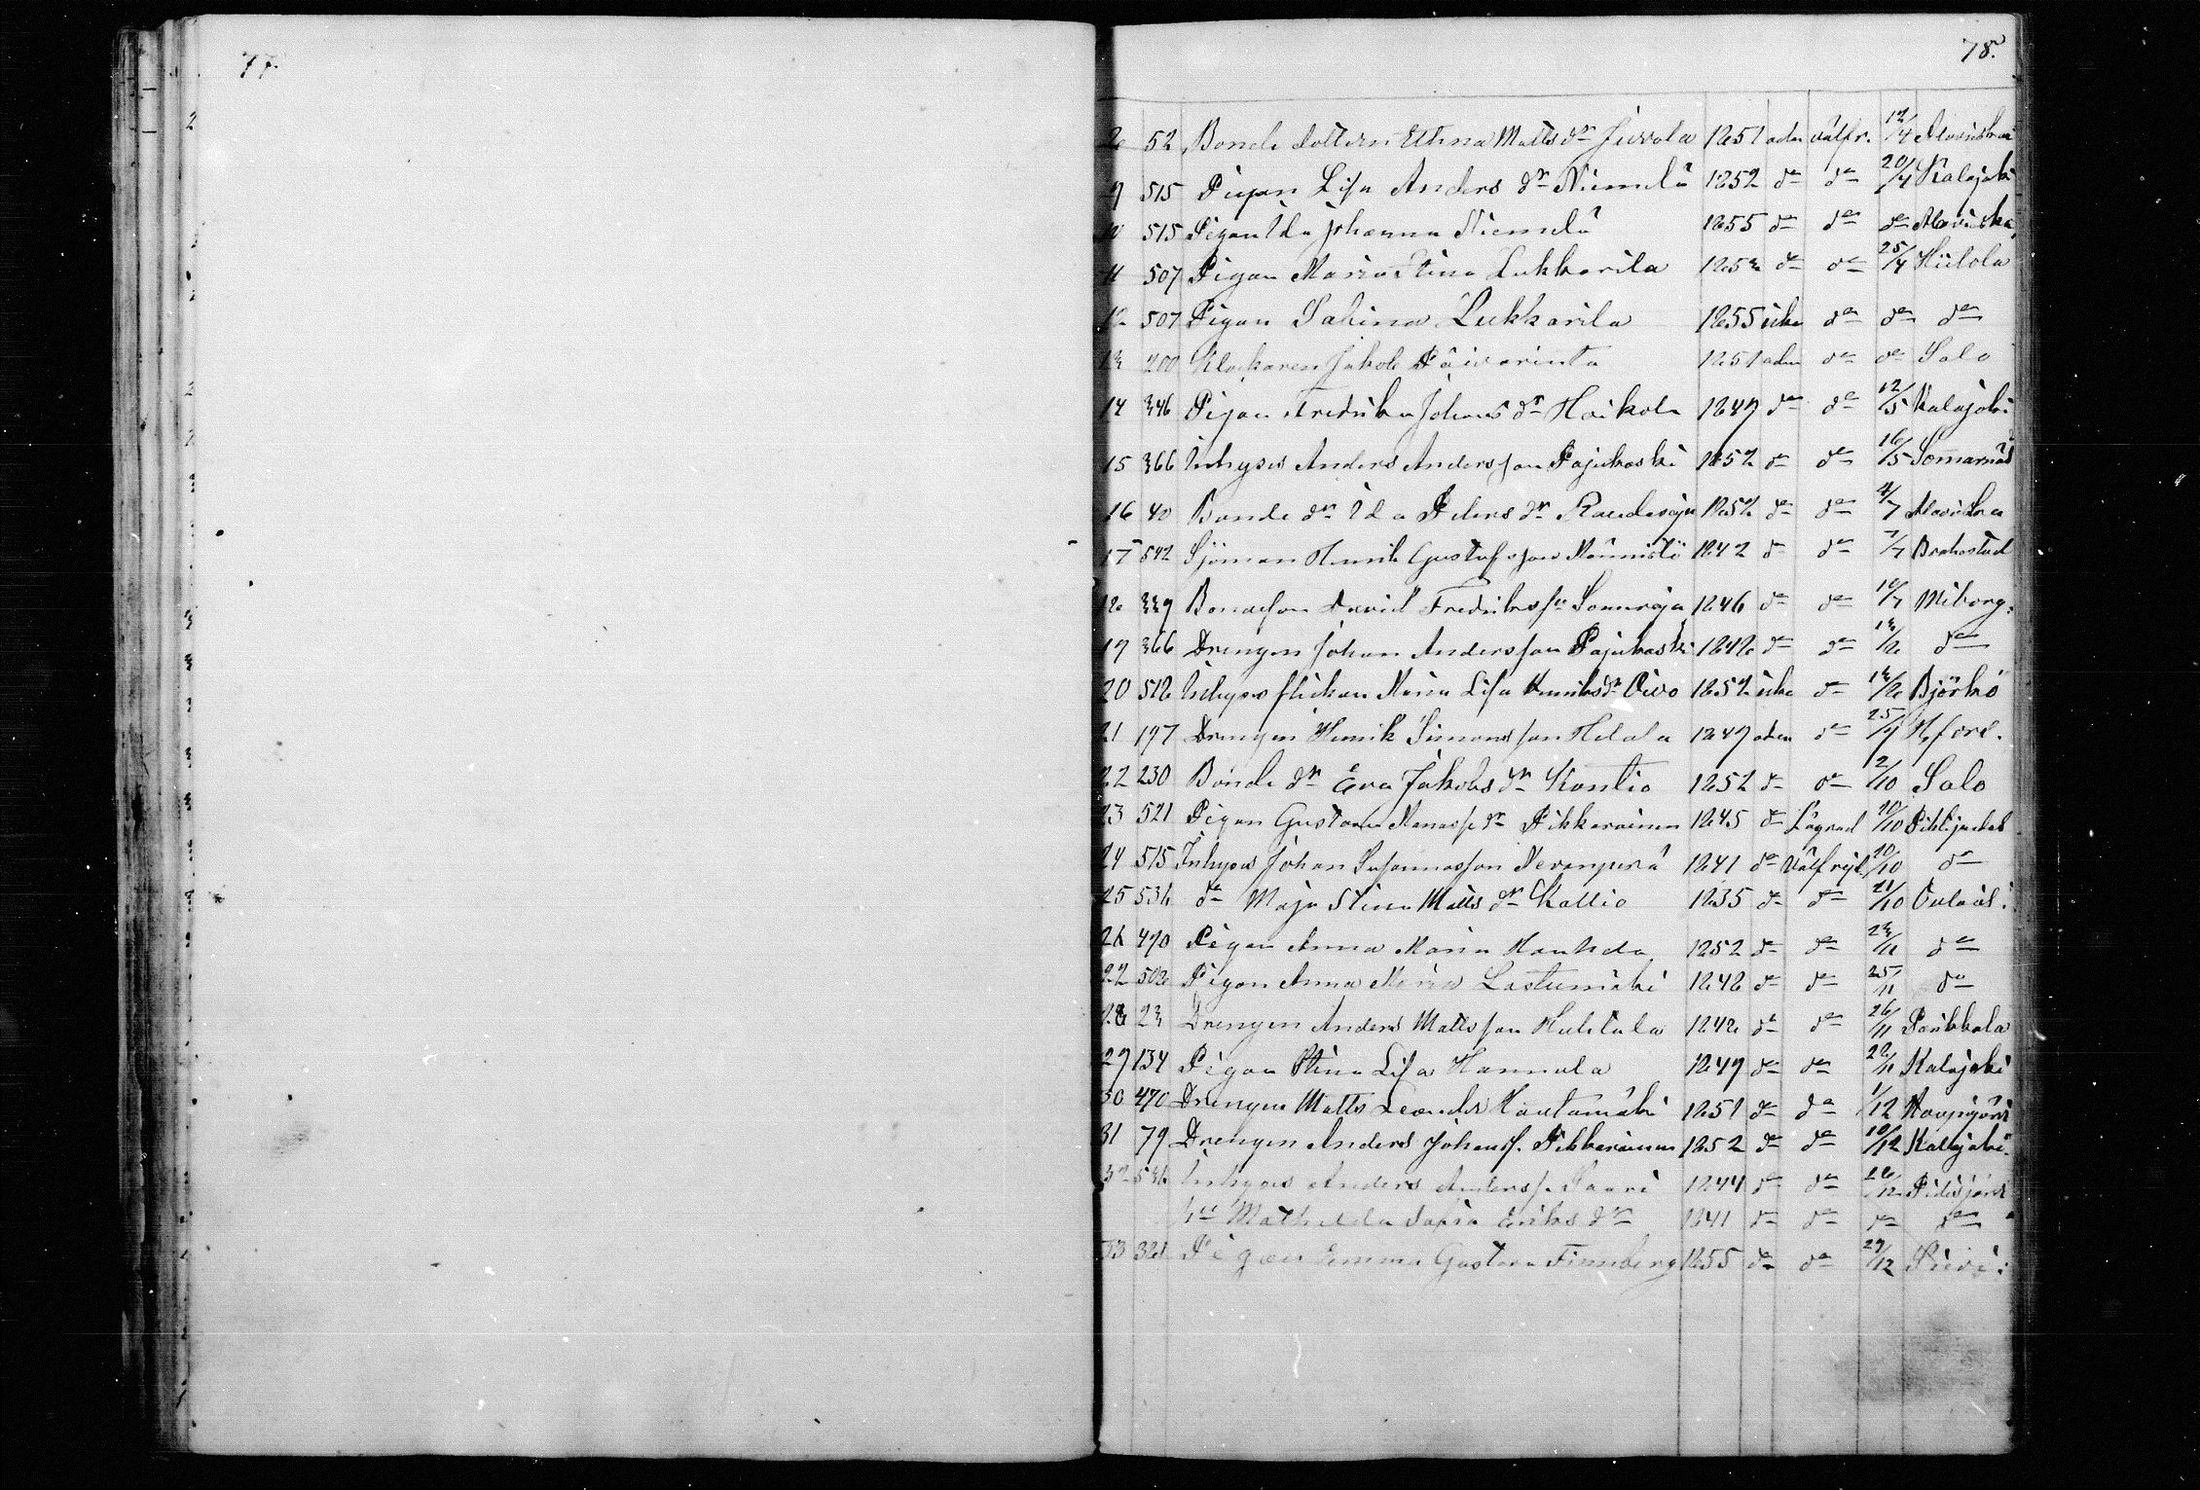 77.
78.
8 52 Bonde dottern Ethna Matts dr Juvola 1851 adm välfr. 12/4 Alavieska
9 515 Pigan Lisa Anders dr Niemelä 1852 do do 20/4 Kalajoki
10 515 Pigan Ida Johanna Niemelä 1855 do do do Alavieska
11 507 Pigan Maria Stina Lukkarila 1853 do do 25/4 Hiitola
12 507 Pigan Sabina Lukkarila 1855 icke do do do
13 200 Klockaren Jakob Päivärinta 1851 adm do do Salo
14 346 Pigan Fredrika Johans dr Haikola 1849 do do 12/5 Kalajoki
15 366 Inhyses Anders Andersson Pajukoski 1852 do do 16/5 Somarnäs
16 40 Bonde dr Ida Peters dr Raudasoja 1852 do do 4/7 Alavieska
17 542 Sjöman Henrik Gustafsson Männistö 1842 do do 7/7 Brahestad
18 339 Bondeson David Fredriks sn Someroja 1846 do do 16/7 Wiborg.
19 366 Drengen Johan Andersson Pajukoski 1848 do do 13/8 do
20 518 Inhyses flickan Maria Lisa Henriksdr Oivo 1852 icke do 13/8 Björkö
21 197 Drengen Henrik Simonsson Helala 1849 adm do 25/9 H,fors.
22 230 Bonde dr Eva Jakobs dr Kontio 1852 do do 2/10 Salo
23 521 Pigan Gustava Manass dr Pikkarainen 1845 do Lägrad 10/10 Pihtipudas
24 515 Inhyses Johan Susannasson Nevanperä 1841 do Välfrejd 10/10 do
25 536 do Maja Stina Matts dr Kallio 1835 do do 21/10 Oulais:
26 470 Pigan Anna Maria Hauhda 1852 do do 23/11 do
27 508 Pigan Anna Maria Lastumäki 1848 do do 25/11 do
28 23 Drengen Anders Mattsson Huhtala 1848 do do 26/11 Parikkala
29 134 Pigan Stina Lisa Hannula 1849 do do 28/11 Kalajoki
30 470 Drengen Matts Leander Hautamäki 1851 do do 1/12 Haapajärvi
31 79 Drengen Anders Johanss. Pikkarainen 1852 do do 10/12 Kalajoki.
32 536 Inhyses Anders Anderss. Saari 1844 do do 28/12 Pidisjärvi
hu Mathilda Sofia Eriks dr 1841 do do do do
33 321 Pigan Emma Gustava Finnberg 1855 do do 29/12 Sievi: